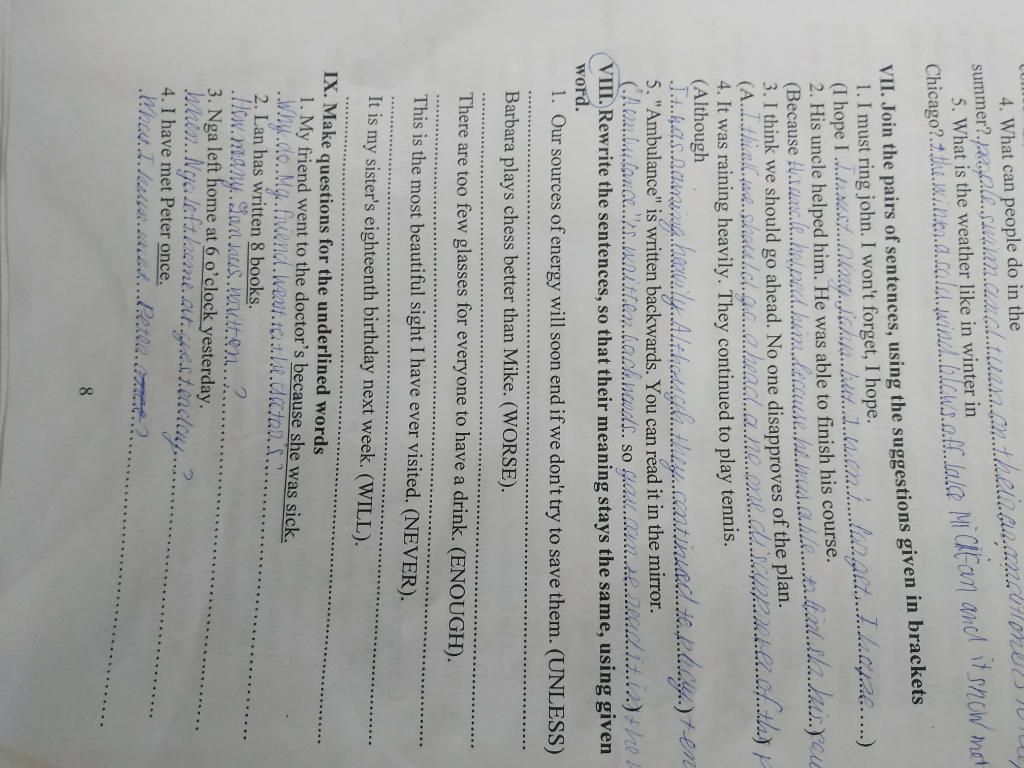 4. What can people do in the
summer? people
5. What is the weather like in winter in
Chicago? the winter a cold wind blows off lake and it snow
VII. Join the pairs of sentences, using the suggestions given in brackets
1. I must ring john. I won't forget, I hope.
(I hope I I must ring John but I won't forget I hope.....)
2. His uncle helped him. He was able to finish his course.
(Because His uncle helped him because he was able his.)
3. I think we should go ahead. No one disapproves of the plan.
(A. I think we should go ahead no one disapproves of the)
4. It was raining heavily. They continued to play tennis.
(Although
It was raining heavily Although they continued to play.)
5. "Ambulance" is written backwards. You can read it in the mirror.
(Ambulance" is written backwards. so you can read it in)
VIII. Rewrite the sentences, so that their meaning stays the same, using given
word.
1. Our sources of energy will soon end if we don't try to save them. (UNLESS)
Barbara plays chess better than Mike. (WORSE).
There are too few glasses for everyone to have a drink. (ENOUGH).
This is the most beautiful sight I have ever visited. (NEVER).
It is my sister's eighteenth birthday next week. (WILL).
IX. Make questions for the underlined words
1. My friend went to the doctor's because she was sick.
Why do My friend went to the doctor's?
2. Lan has written 8 books.
How many written ?
3. Nga left home at 6 o'clock yesterday.
When Nga left home at yesterday ?
4. I have met Peter once.
I Peter ?
8